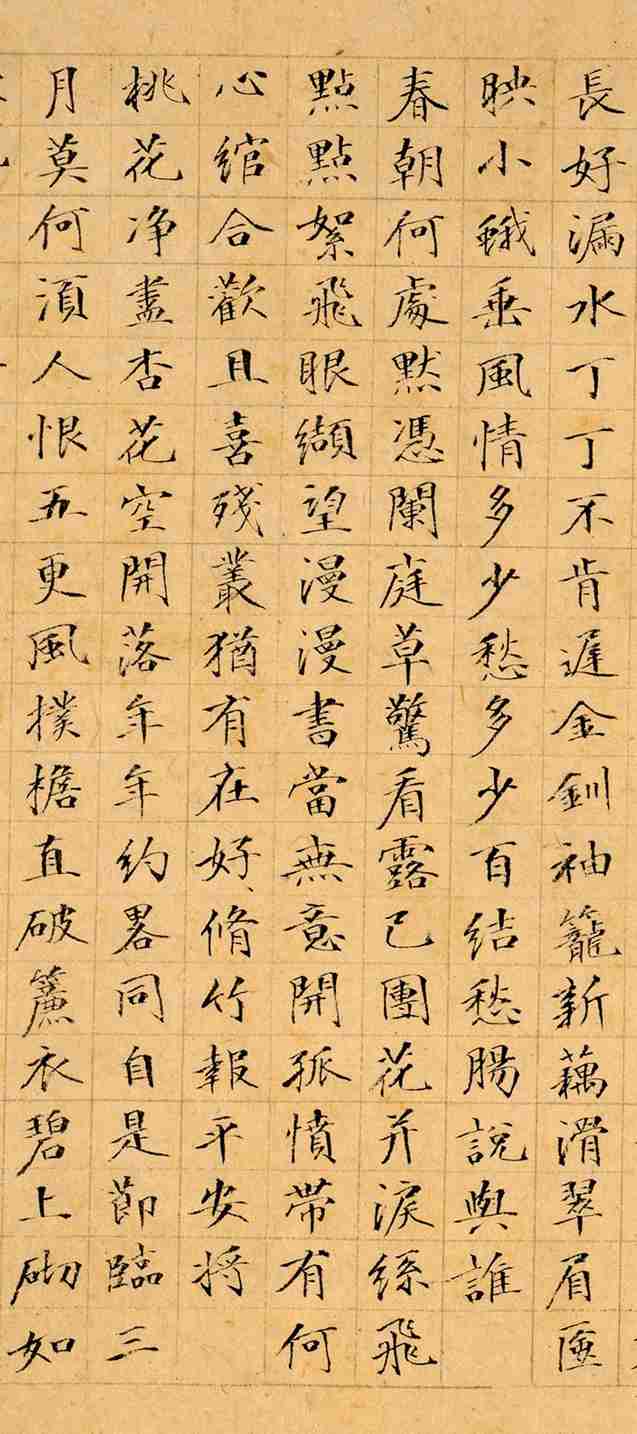 長好漏水丁丁不肯遲金釧袖籠新藕滑翠眉匳
映小蛾垂風情多少愁多少百結愁腸說與誰
春朝何處默憑闌庭草驚看露已團花并淚絲飛
點點絮飛眼纈望漫漫書當無意開孤憤帶有何
心綰合歡且喜殘叢猶有在好脩竹報平安將
桃花净盡杏花空開落年年約畧同自是節臨三
月莫何須人恨五更風撲檐直破簾衣碧上砌如